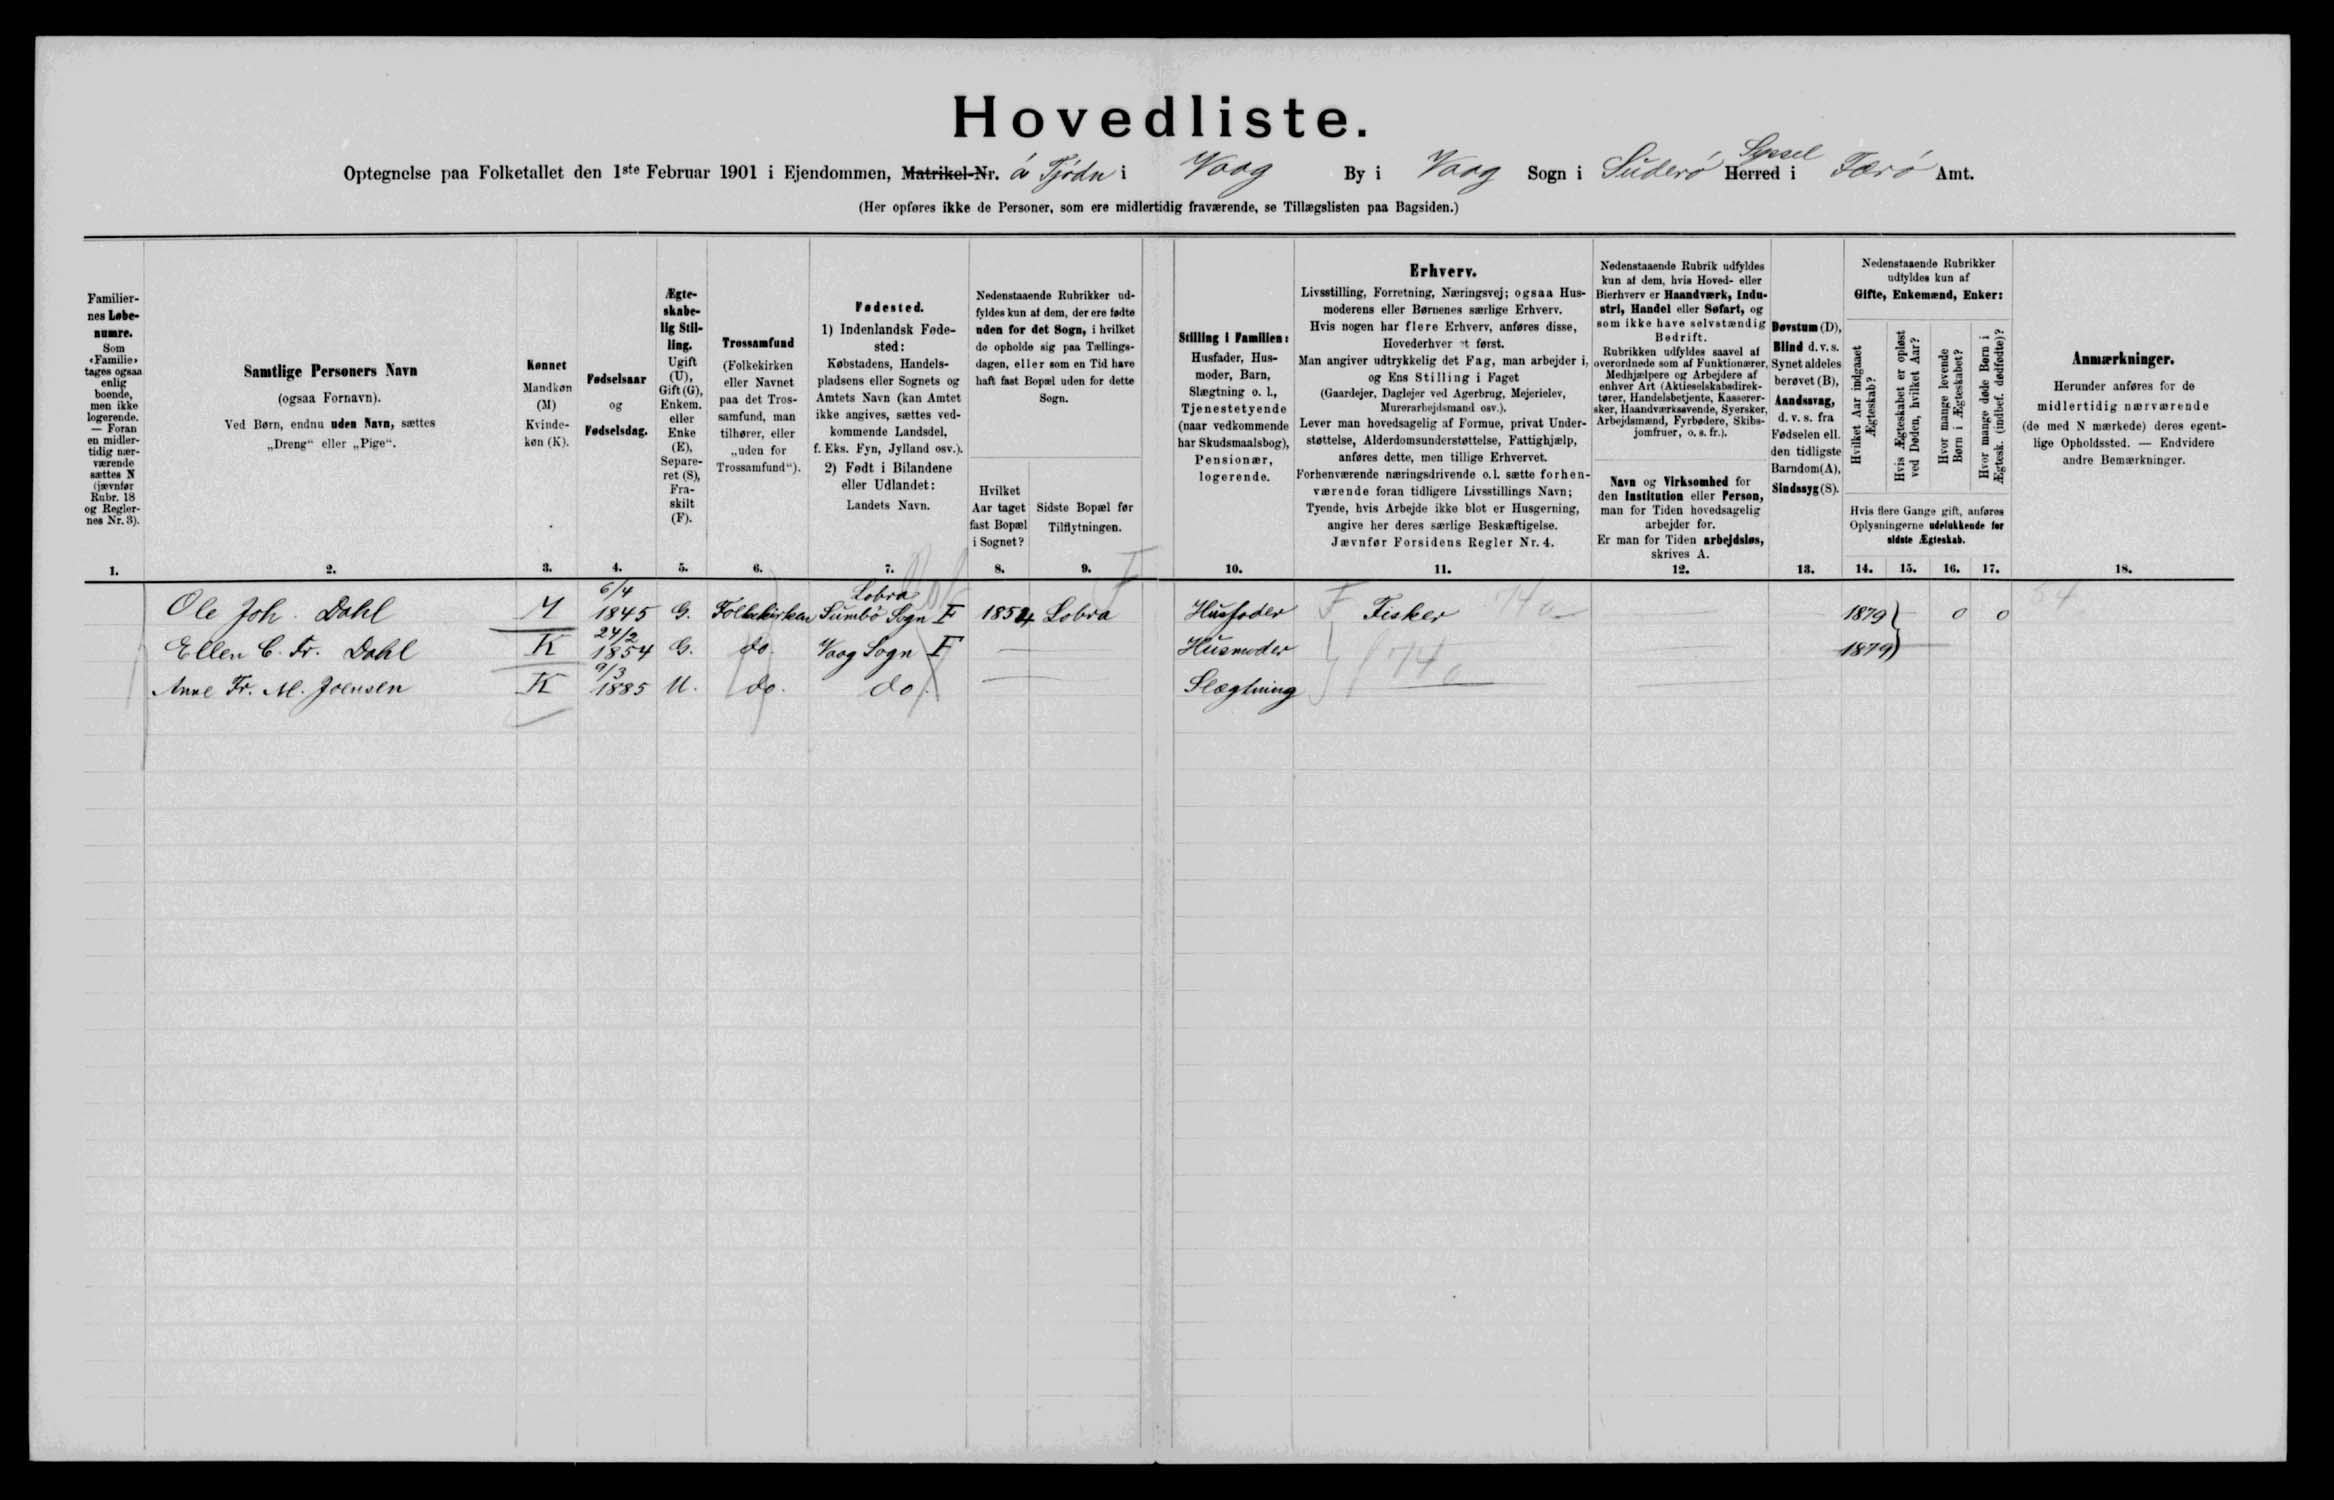 Hovedliste.
Optegnelse paa Folketallet den 1ste Februar 1901 i Ejendommen, Matrikel-Nr. á Tjódn i Vaag By i Vaag Sogn i Suderö Herred i Færö Amt.
Syssel
(Her opføres ikke de Personer, som ere midlertidig fraværende, se Tillægslisten paa Bagsiden.)
Familier-
nes Løbe-
numre.
Som
«Familie»
tages ogsaa
enlig
boende,
men ikke
logerende.
— Foran
en midler-
tidig nær-
værende
sættes N
(jævnfør
Rubr. 18
og Regler-
nes Nr. 3).
1.
Samtlige Personers Navn
(ogsaa Fornavn).
Ved Børn, endnu uden Navn, sættes
„Dreng“ eller „Pige“.
2.
Kønnet
Mandkøn
(M)
Kvinde-
køn (K).
3.
Fødselsaar
og
Fødselsdag.
4.
Ægte-
skabe-
lig Stil-
ling.
Ugift
(U),
Gift (G),
Enkem.
eller
Enke
(E),
Separe-
ret (S),
Fra-
skilt
(F).
5.
Trossamfund
(Folkekirken
eller Navnet
paa det Tros-
samfund, man
tilhører, eller
„uden for
Trossamfund“).
6.
Fødested.
1) Indenlandsk Føde-
sted:
Købstadens, Handels-
pladsens eller Sognets og
Amtets Navn (kan Amtet
ikke angives, sættes ved-
kommende Landsdel,
f. Eks. Fyn, Jylland osv.).
2) Født i Bilandene
eller Udlandet:
Landets Navn.
7.
Nedenstaaende Rubrikker ud-
fyldes kun af dem, der ere fødte
uden for det Sogn, i hvilket
de opholde sig paa Tællings-
dagen, eller som en Tid have
haft fast Bopæl uden for dette
Sogn.
Hvilket
Aar taget
fast Bopæl
i Sognet?
8.
Sidste Bopæl før
Tilflytningen.
9.
Stilling i Familien:
Husfader, Hus-
moder, Barn,
Slægtning o. l.,
Tjenestetyende
(naar vedkommende
har Skudsmaalsbog),
Pensionær,
logerende.
10.
Erhverv.
Livsstilling, Forretning, Næringsvej; ogsaa Hus-
moderens eller Børnenes særlige Erhverv.
Hvis nogen har flere Erhverv, anføres disse,
Hovederhvervet først.
Man angiver udtrykkelig det Fag, man arbejder i,
og Ens Stilling i Faget
(Gaardejer, Daglejer ved Agerbrug, Mejerielev,
Murerarbejdsmand osv.).
Lever man hovedsagelig af Formue, privat Under-
støttelse, Alderdomsunderstøttelse, Fattighjælp,
anføres dette, men tillige Erhvervet.
Forhenværende næringsdrivende o.l. sætte forhen-
værende foran tidligere Livsstillings Navn;
Tyende, hvis Arbejde ikke blot er Husgerning,
angive her deres særlige Beskæftigelse.
Jævnfør Forsidens Regler Nr. 4.
11.
Nedenstaaende Rubrik udfyldes
kun af dem, hvis Hoved- eller
Bierhverv er Haandværk, Indu-
stri, Handel eller Søfart, og
som ikke have selvstændig
Bedrift.
Rubrikken udfyldes saavel af
overordnede som af Funktionærer,
Medhjælpere og Arbejdere af
enhver Art (Aktieselskabsdirek-
tører, Handelsbetjente, Kasserer-
sker, Haandværkssvende, Syersker,
Arbejdsmænd, Fyrbødere, Skibs-
jomfruer, o. s. fr.).
Navn og Virksomhed for
den Institution eller Person,
man for Tiden hovedsagelig
arbejder for.
Er man for Tiden arbejdsløs,
skrives A.
12.
Døvstum (D),
Blind d. v. s.
Synet aldeles
berøvet (B),
Aandssvag,
d. v. s. fra
Fødselen ell.
den tidligste
Barndom (A),
Sindssyg (S).
13.
Nedenstaaende Rubrikker
udfyldes kun af
Gifte, Enkemænd, Enker:
Hvilket Aar indgaaet
Ægteskab?
Hvis Ægteskabet er opløst
ved Døden, hvilket Aar?
Hvor mange levende
Børn i Ægteskabet?
Hvor mange døde Børn i
Ægtesk. (indbef. dødfødte)?
Hvis flere Gange gift, anføres
Oplysningerne udelukkende for
sidste Ægteskab.
14. 15. 16. 17.
Anmærkninger.
Herunder anføres for de
midlertidig nærværende
(de med N mærkede) deres egent-
lige Opholdssted. — Endvidere
andre Bemærkninger.
18.
6/4 Lobra
Ole Joh. Dahl M 1845 G. Folkekirken Sumbö Sogn F 1854 Lobra Husfader F Fisker 74 a 1879 — 0 0
24/2
Ellen C. Fr. Dahl K 1854 G. do. Vaag Sogn F — Husmoder 74 a 1879
9/3
Anne Fr. M. Joensen K 1885 U. do. do. — Slægtning